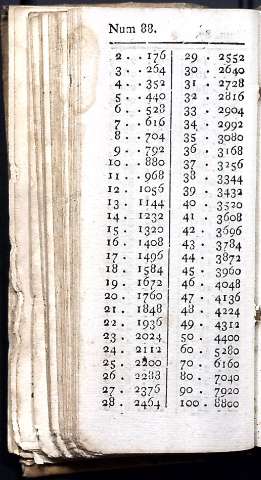 Num 88.
2 . . 176 | 29 . 2552
3 . . 264 | 30 . 2640
4 . . 352 | 31 . 2728
5 . . 440 | 32 . 2816
6 . . 528 | 33 . 2904
7 . . 616 | 34 . 2992
8 . . 704 | 35 . 3080
9 . . 792 | 36 . 3168
10 . . 880 | 37 . 3256
11 . . 968 | 38 . 3344
12 . 1056 | 39 . 3432
13 . 1144 | 40 . 3520
14 . 1232 | 41 . 3608
15 . 1320 | 42 . 3696
16 . 1408 | 43 . 3784
17 . 1496 | 44 . 3872
18 . 1584 | 45 . 3960
19 . 1672 | 46 . 4048
20 . 1760 | 47 . 4136
21 . 1848 | 48 . 4224
22 . 1936 | 49 . 4312
23 . 2024 | 50 . 4400
24 . 2112 | 60 . 5280
25 . 2200 | 70 . 6160
26 . 2288 | 80 . 7040
27 . 2376 | 90 . 7920
28 . 2464 | 100 . 8800